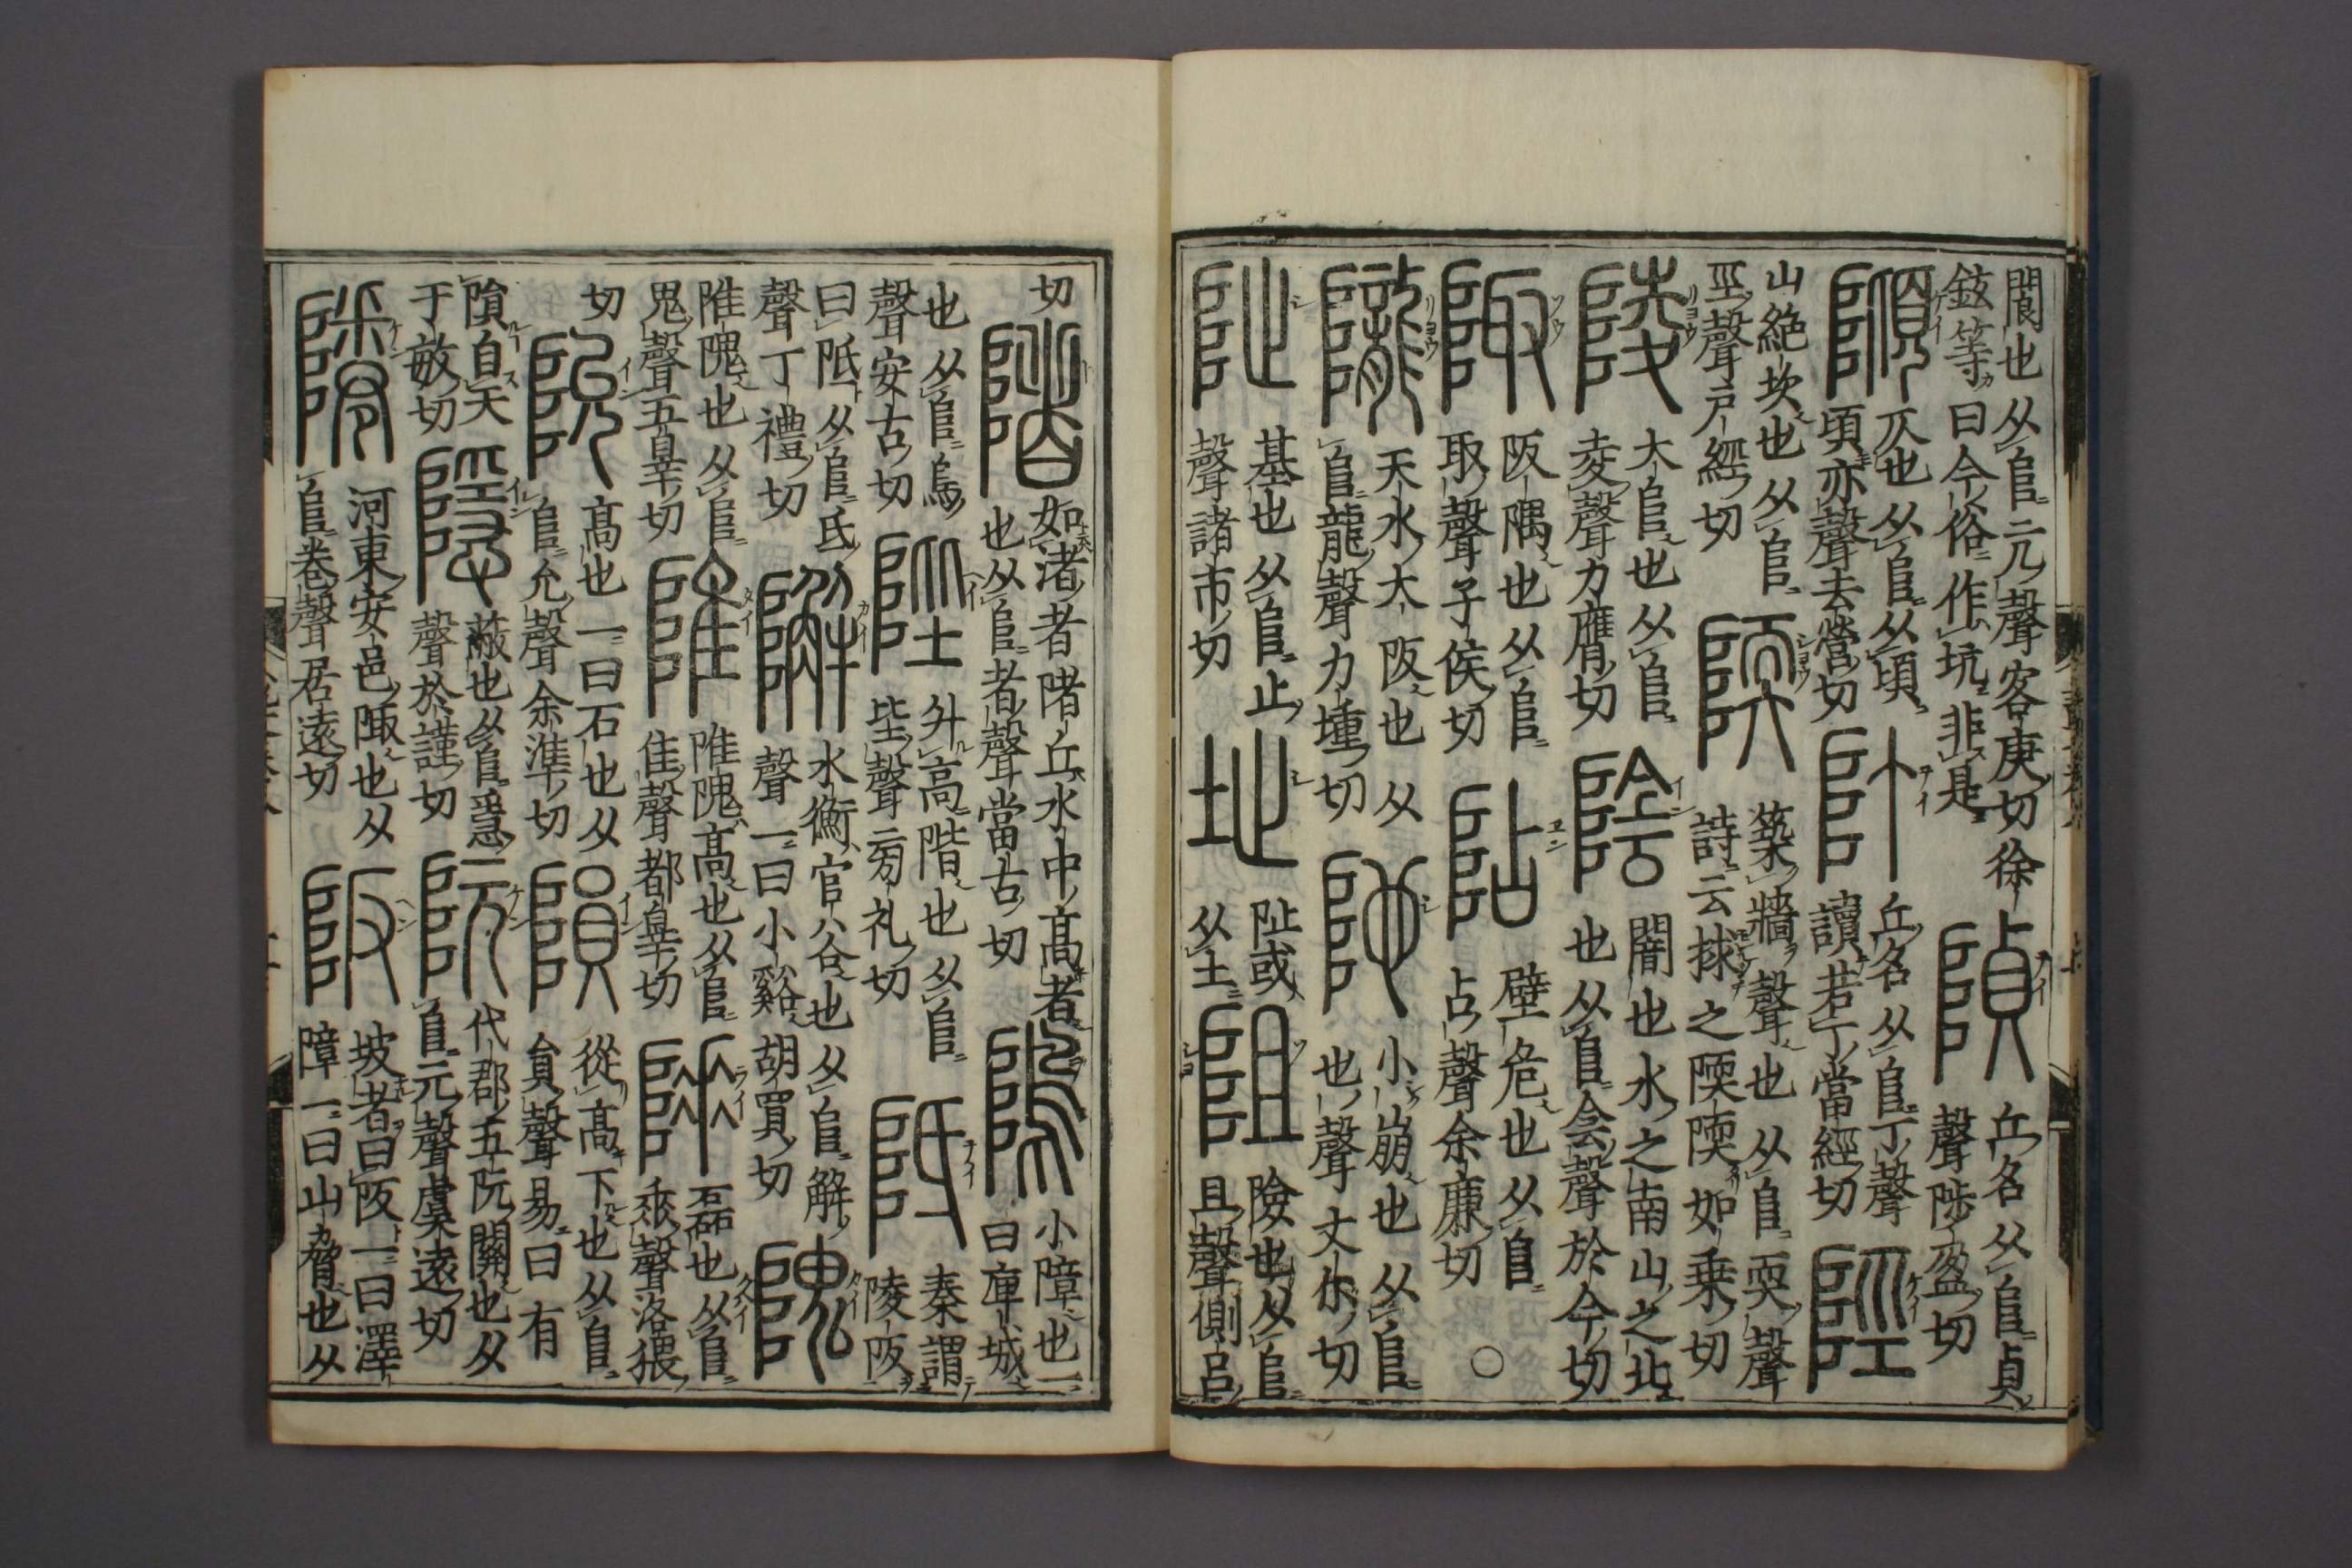 閬也从𨸏亢聲客庚切徐
鉉等曰今俗作坑非是
丘名从𨸏貞
聲陟盈切
仄也从𨸏从頃
頃亦聲去營切
丘名从𨸏丁聲
讀若丁當經切
陘
山絶坎也从𨸏
巠聲戸經切
陾
築牆聲也从𨸏耎聲
詩云捄之陾陾如乗切
陵
大𨸏也从𨸏
夌聲力膺切
陰
闇也水之南山之北
也从𨸏侌聲於今切
陬
阪隅也从𨸏
取聲子侯切
阽
壁危也从𨸏
占聲余廉切
○
隴
天水大阪也从
𨸏龍聲力堹切
阤
小崩也从𨸏
也聲丈尒切
阯
基也从𨸏止
聲諸市切
址
阯或
从土
阻
險也从𨸏
且聲側吕
切
陼
如渚者陼丘水中高者
也从𨸏者聲當古切
隖
小障也一
曰庳城
也从𨸏烏
聲安古切
陛
升高階也从𨸏
坒聲㫄礼切
阺
秦謂
陵阪
曰阺从𨸏氐
聲丁禮切
水衡官谷也从𨸏解
聲一曰小谿胡買切
隗
陮隗也从𨸏
鬼聲五辠切
陮
陮隗高也从𨸏
隹聲都辠切
磊也从𨸏
𠂹聲洛猥
切
阭
高也一曰石也从
𨸏允聲余準切
隕
從高下也从𨸏
員聲易曰有
隕自天
于敏切
隱
蔽也从𨸏㥯
聲於謹切
阮
代郡五阮關也从
𨸏元聲虞遠切
河東安邑陬也从
𨸏卷聲居遠切
阪
坡者曰阪一曰澤
障一曰山脅也从